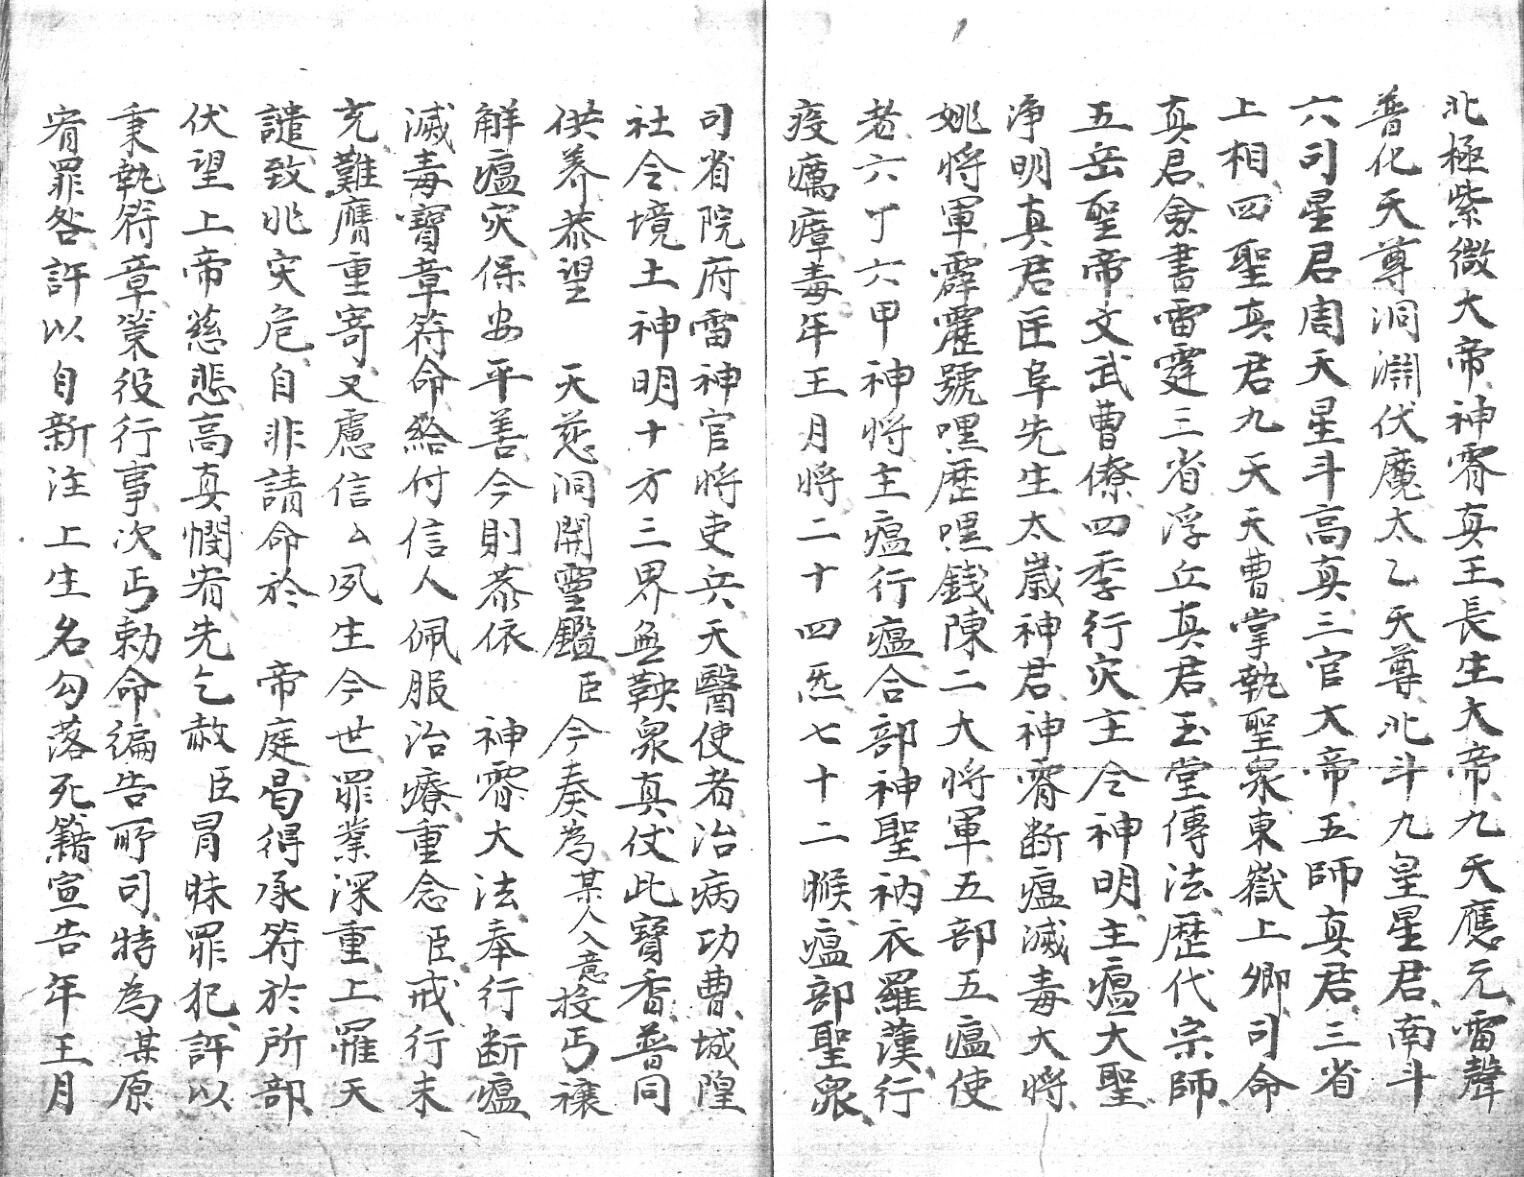 北極紫微大帝神霄真王長生大帝九天應元雷聲
普化天尊洞淵伏魔太乙天尊北斗九皇星君南斗
六司星君周天星斗高真三官大帝五師真君三省
上相四聖真君九天天曹掌執聖衆東嶽上卿司命
真君侌書雷霆三省浮丘真君玉堂傳法歷代宗師
五岳聖帝文武曹僚四季行灾主令神明主瘟大聖
淨明真君匡阜先生太歲神君神霄断瘟滅毒大將
姚將軍霹靂號嘿歷嘿錢陳二大將軍五部五瘟使
者六丁六甲神將主瘟行瘟合部神聖衲衣羅漢行
疫癘瘴毒年王月將二十四炁七十二候瘟部聖衆
司省院府雷神官將吏兵天醫使者治病功曹城隍
社令境土神明十方三界無鞅衆真仗此寶香普同
供养恭望　天慈洞開靈鑑臣今奏為某人入意投丐禳
解瘟灾保安平善今則恭依　神霄大法奉行断瘟
滅毒寶章符命給付信人佩服治療重念臣戒行未
充難膺重寄又慮信厶夙生今世罪業深重上罹天
譴致兆灾危自非請命於　帝庭曷得承符於所部
伏望上帝慈悲高真憫宥先乞赦　臣冒昧罪犯許以
秉執符章䇿役行事次丐勅命徧告所司特為某原
宥罪咎許以自新注上生名勾落死籍宣告年王月